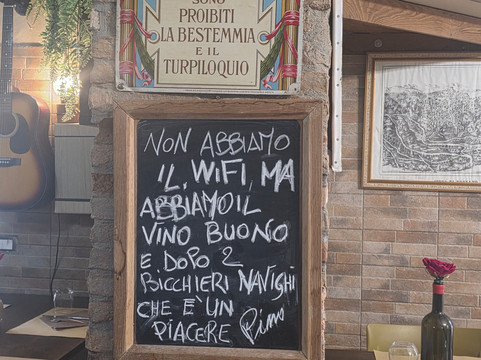 SONO
PROIBITI
LA BESTEMMIA
E IL
TURPILOQUIO
NON ABBIAMO
IL WIFI, MA
ABBIAMO IL
VINO BUONO
E DOPO 2
BICCHIERI NAVIGHI
CHE E' UN
PIACERE